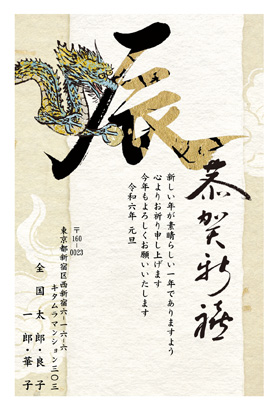 辰
恭賀新禧
新しい年が素晴らしい一年でありますよう
心よりお祈り申し上げます
今年もよろしくお願いいたします
令和六年 元旦
〒160-0023
東京都新宿区西新宿六-一六-六
キタムラマンション三〇三
全国太郎・良子
一郎・華子